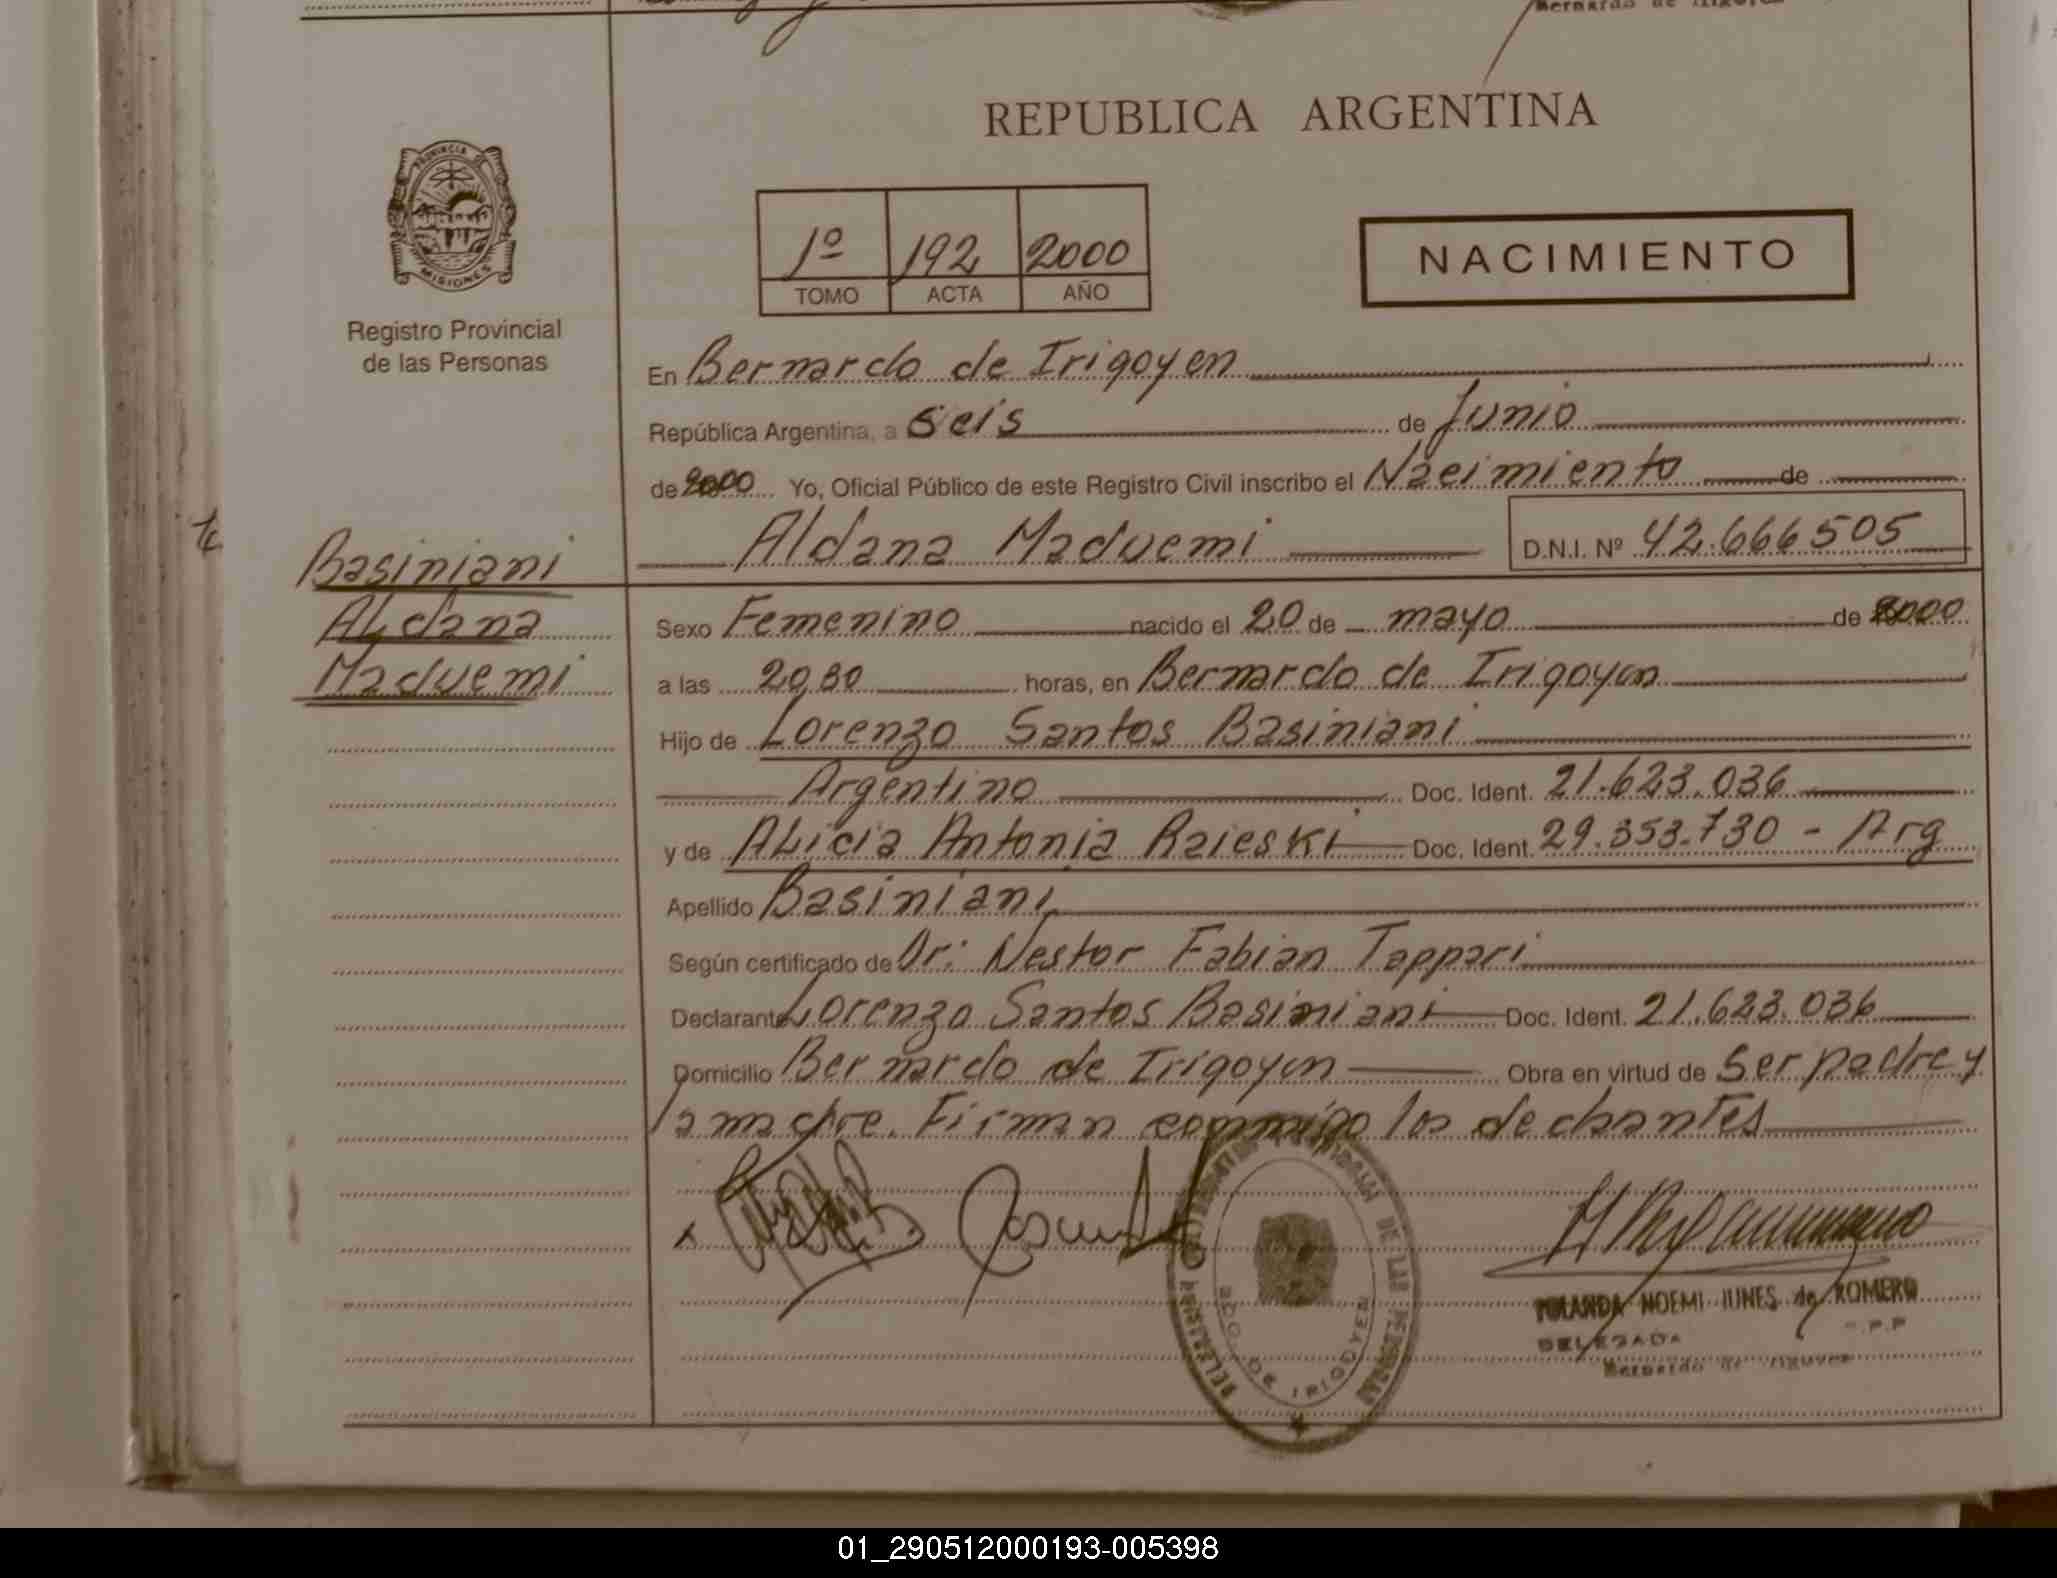 Bernardo de Irigoyen
REPUBLICA ARGENTINA
PROVINCIA DE
MISIONES
Registro Provincial
de las Personas
1º 192 2000
TOMO ACTA AÑO
NACIMIENTO
En Bernardo de Irigoyen
República Argentina, a seis de Junio
de 2000 Yo, Oficial Público de este Registro Civil inscribo el Nacimiento de
Aldana Maduemi D.N.I. Nº 42.666505
Basiniani
Aldana
Maduemi
Sexo Femenino nacido el 20 de mayo de 2000
a las 20,30 horas, en Bernardo de Irigoyen
Hijo de Lorenzo Santos Basiniani
Argentino Doc. Ident. 21.623.036
y de Alicia Antonia Raieski Doc. Ident. 29.353.730 - Arg
Apellido Basiniani
Según certificado de Dr: Nestor Fabian Tappari
Declarante Lorenzo Santos Basiniani Doc. Ident. 21.623.036
Domicilio Bernardo de Irigoyen Obra en virtud de ser padre y
la madre. Firman conmigo los declarantes
BDO. DE IRIGOYEN
YOLANDA NOEMI IUNES de ROMERO
DELEGADA R.P.P
Bernardo de Irigoyen
01_290512000193-005398